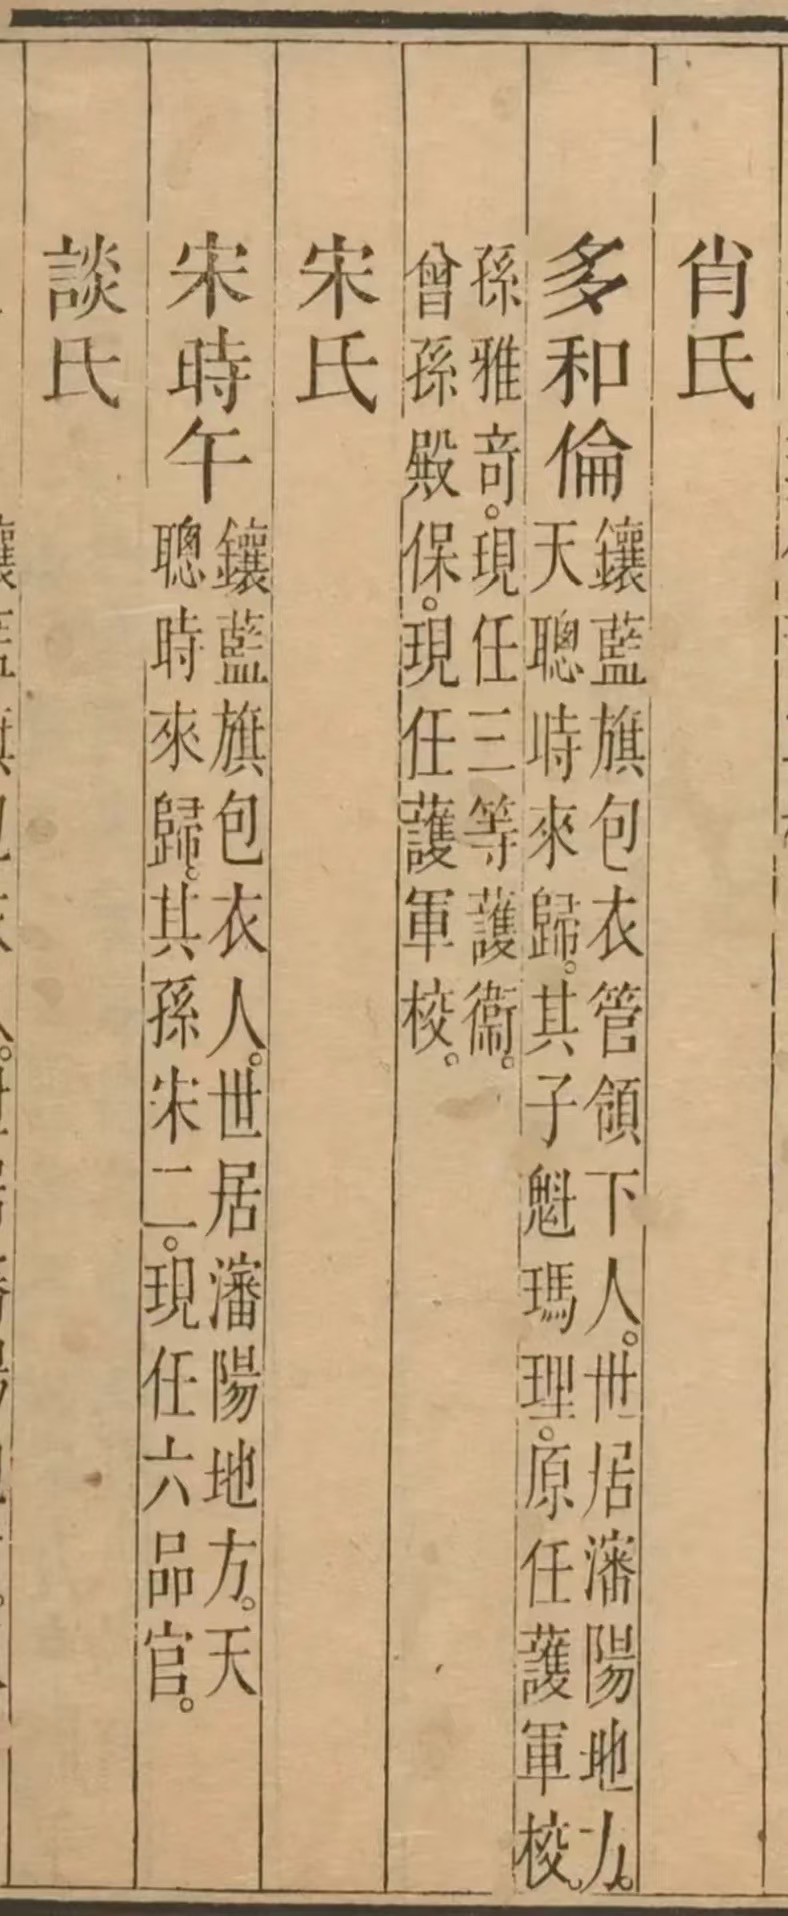 肖氏
多和倫
鑲藍旗包衣管領下人。世居瀋陽地方。
天聰時來歸。其子魁瑪理。原任護軍校。
孫雅竒。現任三等護衛。
曾孫殿保。現任護軍校。
宋氏
宋時午
鑲藍旗包衣人。世居瀋陽地方。天
聰時來歸。其孫宋二。現任六品官。
談氏